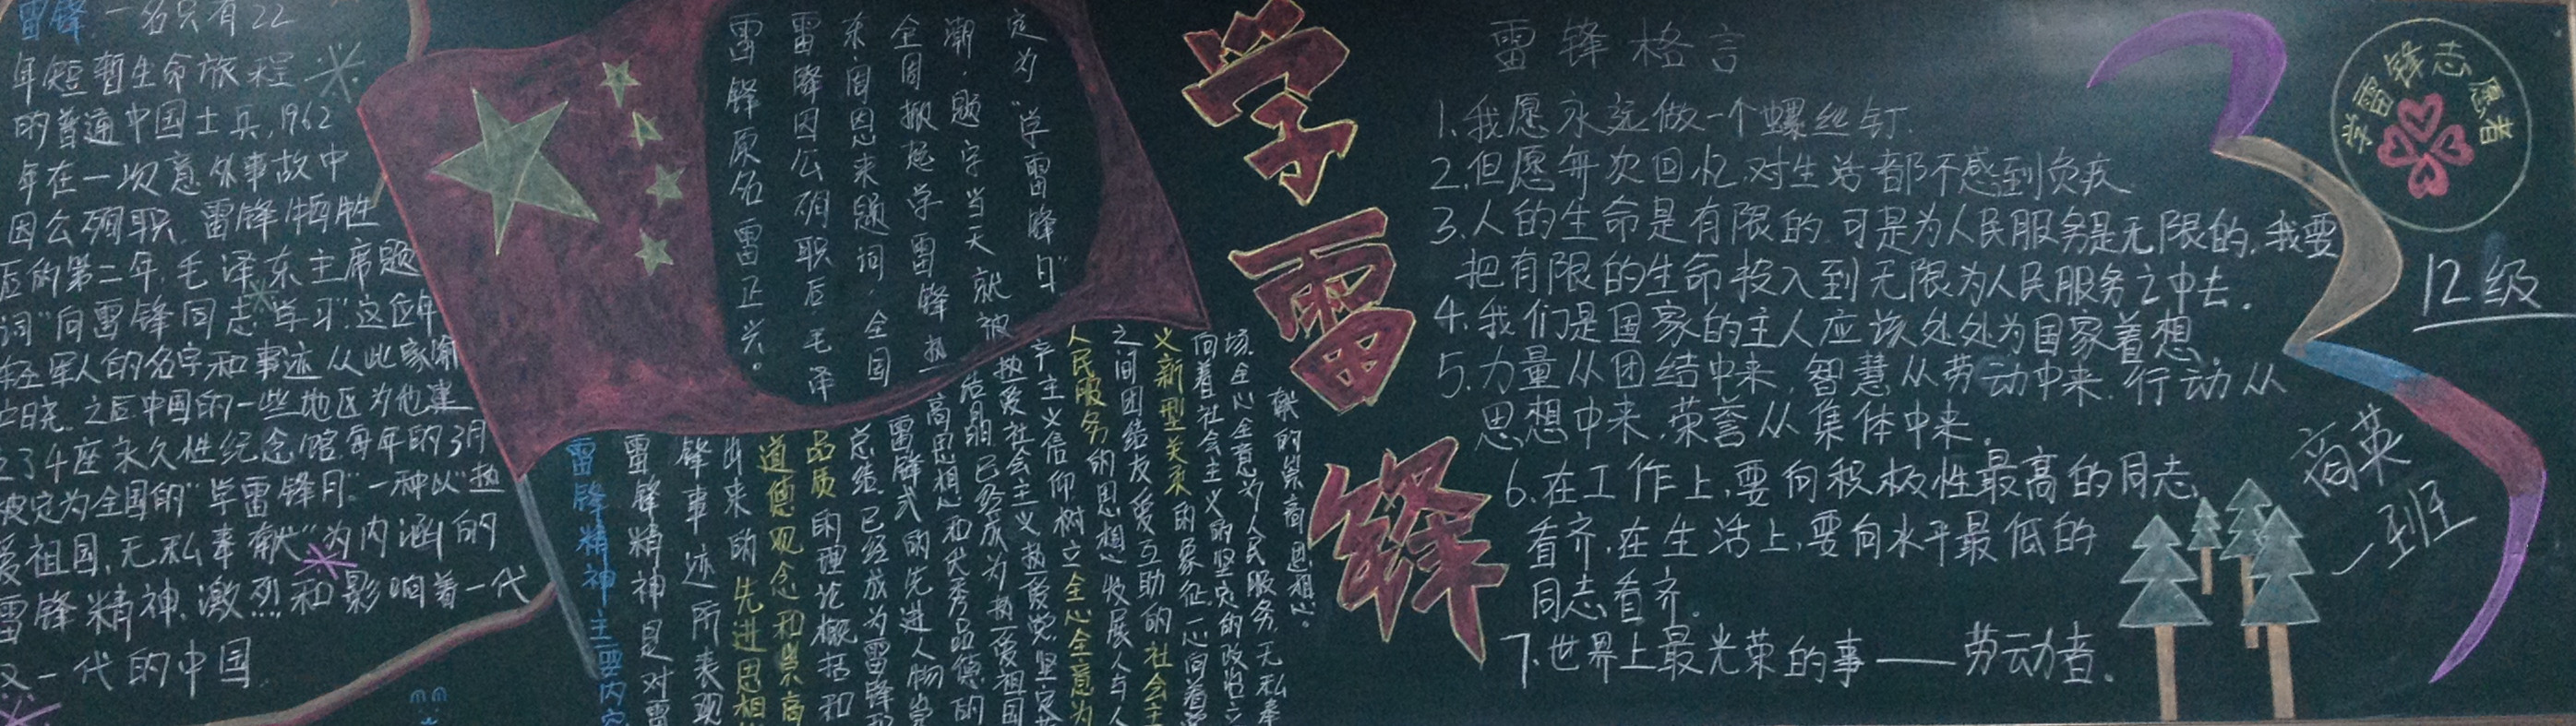 雷锋,一名只有22
年短暂生命旅程
的普通中国士兵,1962
年在一次意外事故中
因公殉职.雷锋牺牲
后的第二年,毛泽东主席题
词“向雷锋同志学习”.这位年
轻军人的名字和事迹从此家喻
户晓.之后中国的一些地区为他建
了4座永久性纪念馆.每年的3月
被定为全国的“学雷锋月”.一种以“热
爱祖国,无私奉献”为内涵的
雷锋精神.激烈和影响着一代
又一代的中国
雷锋原名雷正兴。
雷锋因公殉职后,毛泽
东周恩来题词,全国
全国掀起学雷锋热
潮.题字当天就被
定为“学雷锋日”
雷锋精神主要内容
雷锋精神是对雷
锋事迹所表现
出来的先进思想
道德观念和崇高
品质的理论概括和
总结.已经成为雷锋
雷锋式的先进人物崇
高思想和优秀品德的
结晶已经成为热爱祖国
热爱社会主义热爱党.坚定共
产主义信仰树立全心全意为
人民服务的思想.发展人与人
之间团结友爱互助的社会主
义新型关系的象征.心向着
向着社会主义的坚定的政治立
场.全心全意为人民服务,无私奉
献的崇高思想.
学雷锋
雷锋格言
1.我愿永远做一个螺丝钉.
2.但愿每次回忆.对生活都不感到负疚
3.人的生命是有限的.可是为人民服务是无限的.我要
把有限的生命投入到无限为人民服务之中去.
4.我们是国家的主人应该处处为国家着想
5.力量从团结中来,智慧从劳动中来.行动从
思想中来.荣誉从集体中来。
6.在工作上,要向积极性最高的同志
看齐.在生活上,要向水平最低的
同志看齐.
7.世界上最光荣的事——劳动者.
学雷锋志愿者
12级
商英
一班